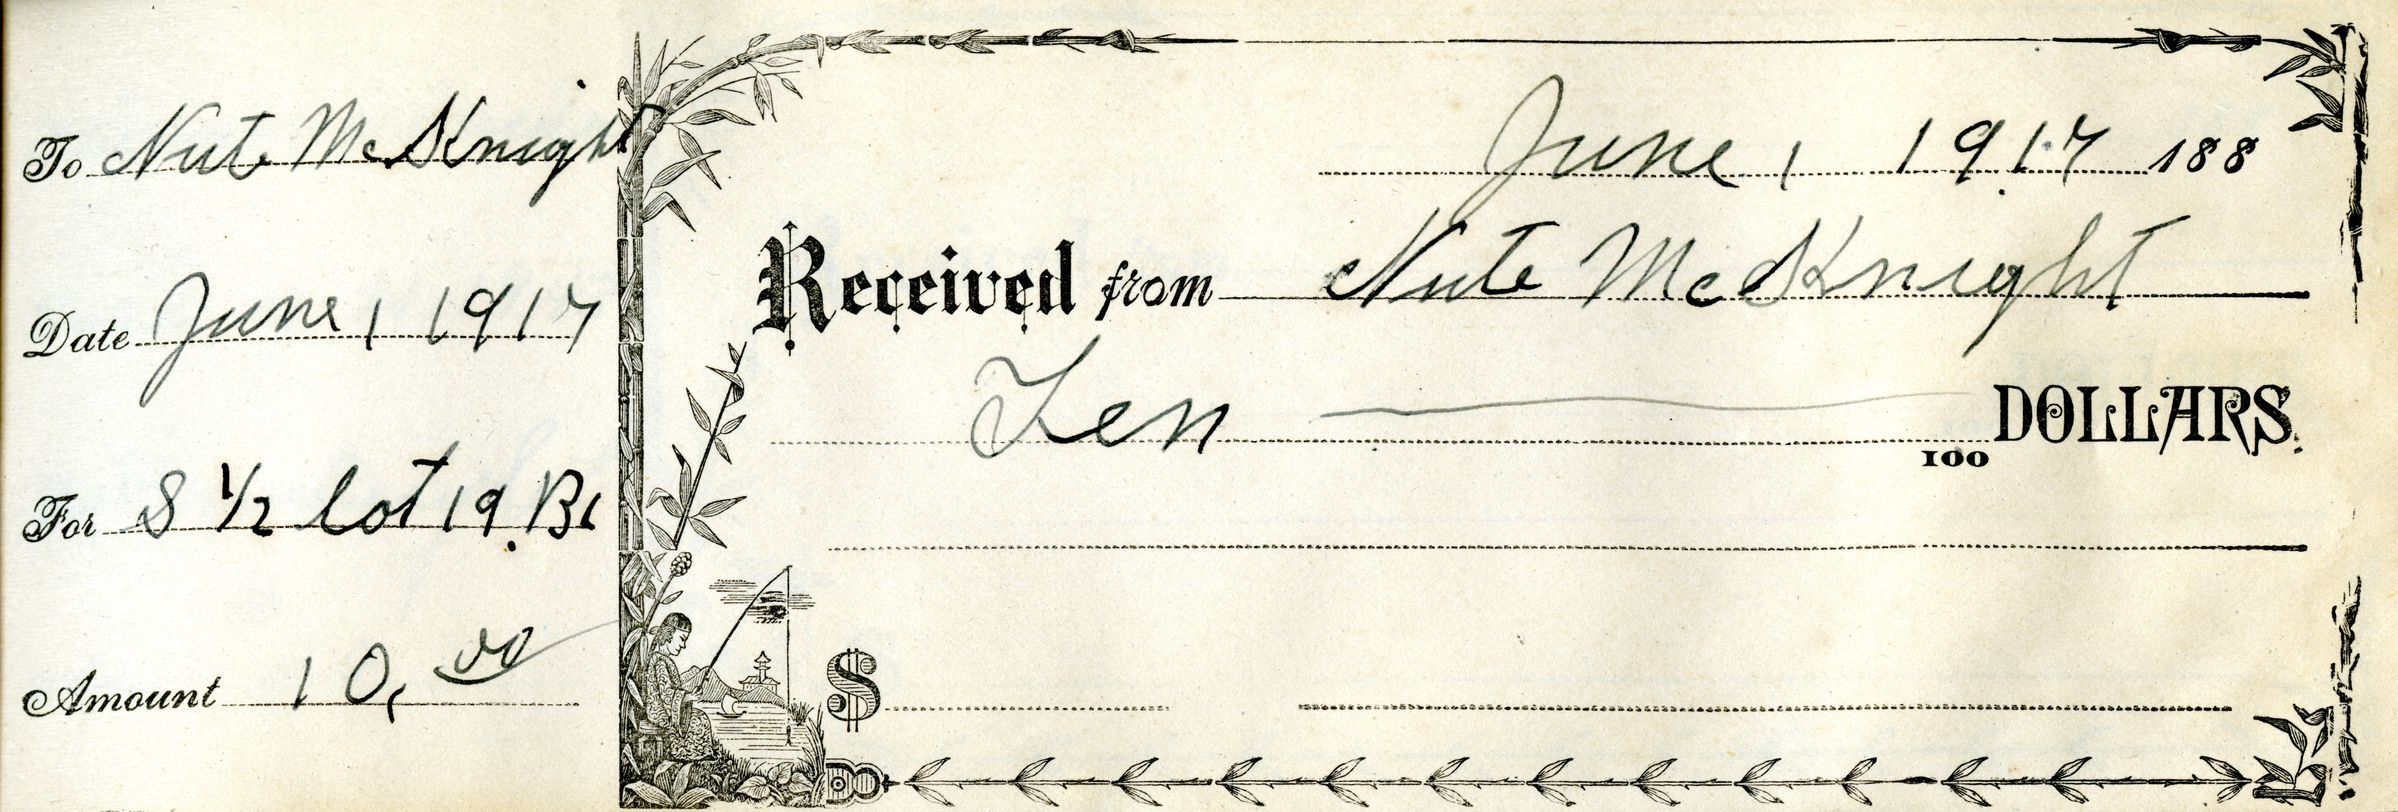 To Nute McKnight
Date June 1 1917
For S 1/2 lot 19. B1
Amount 10,00
June 1 1917 188
Received from Nute McKnight
Ten DOLLARS.
100
$